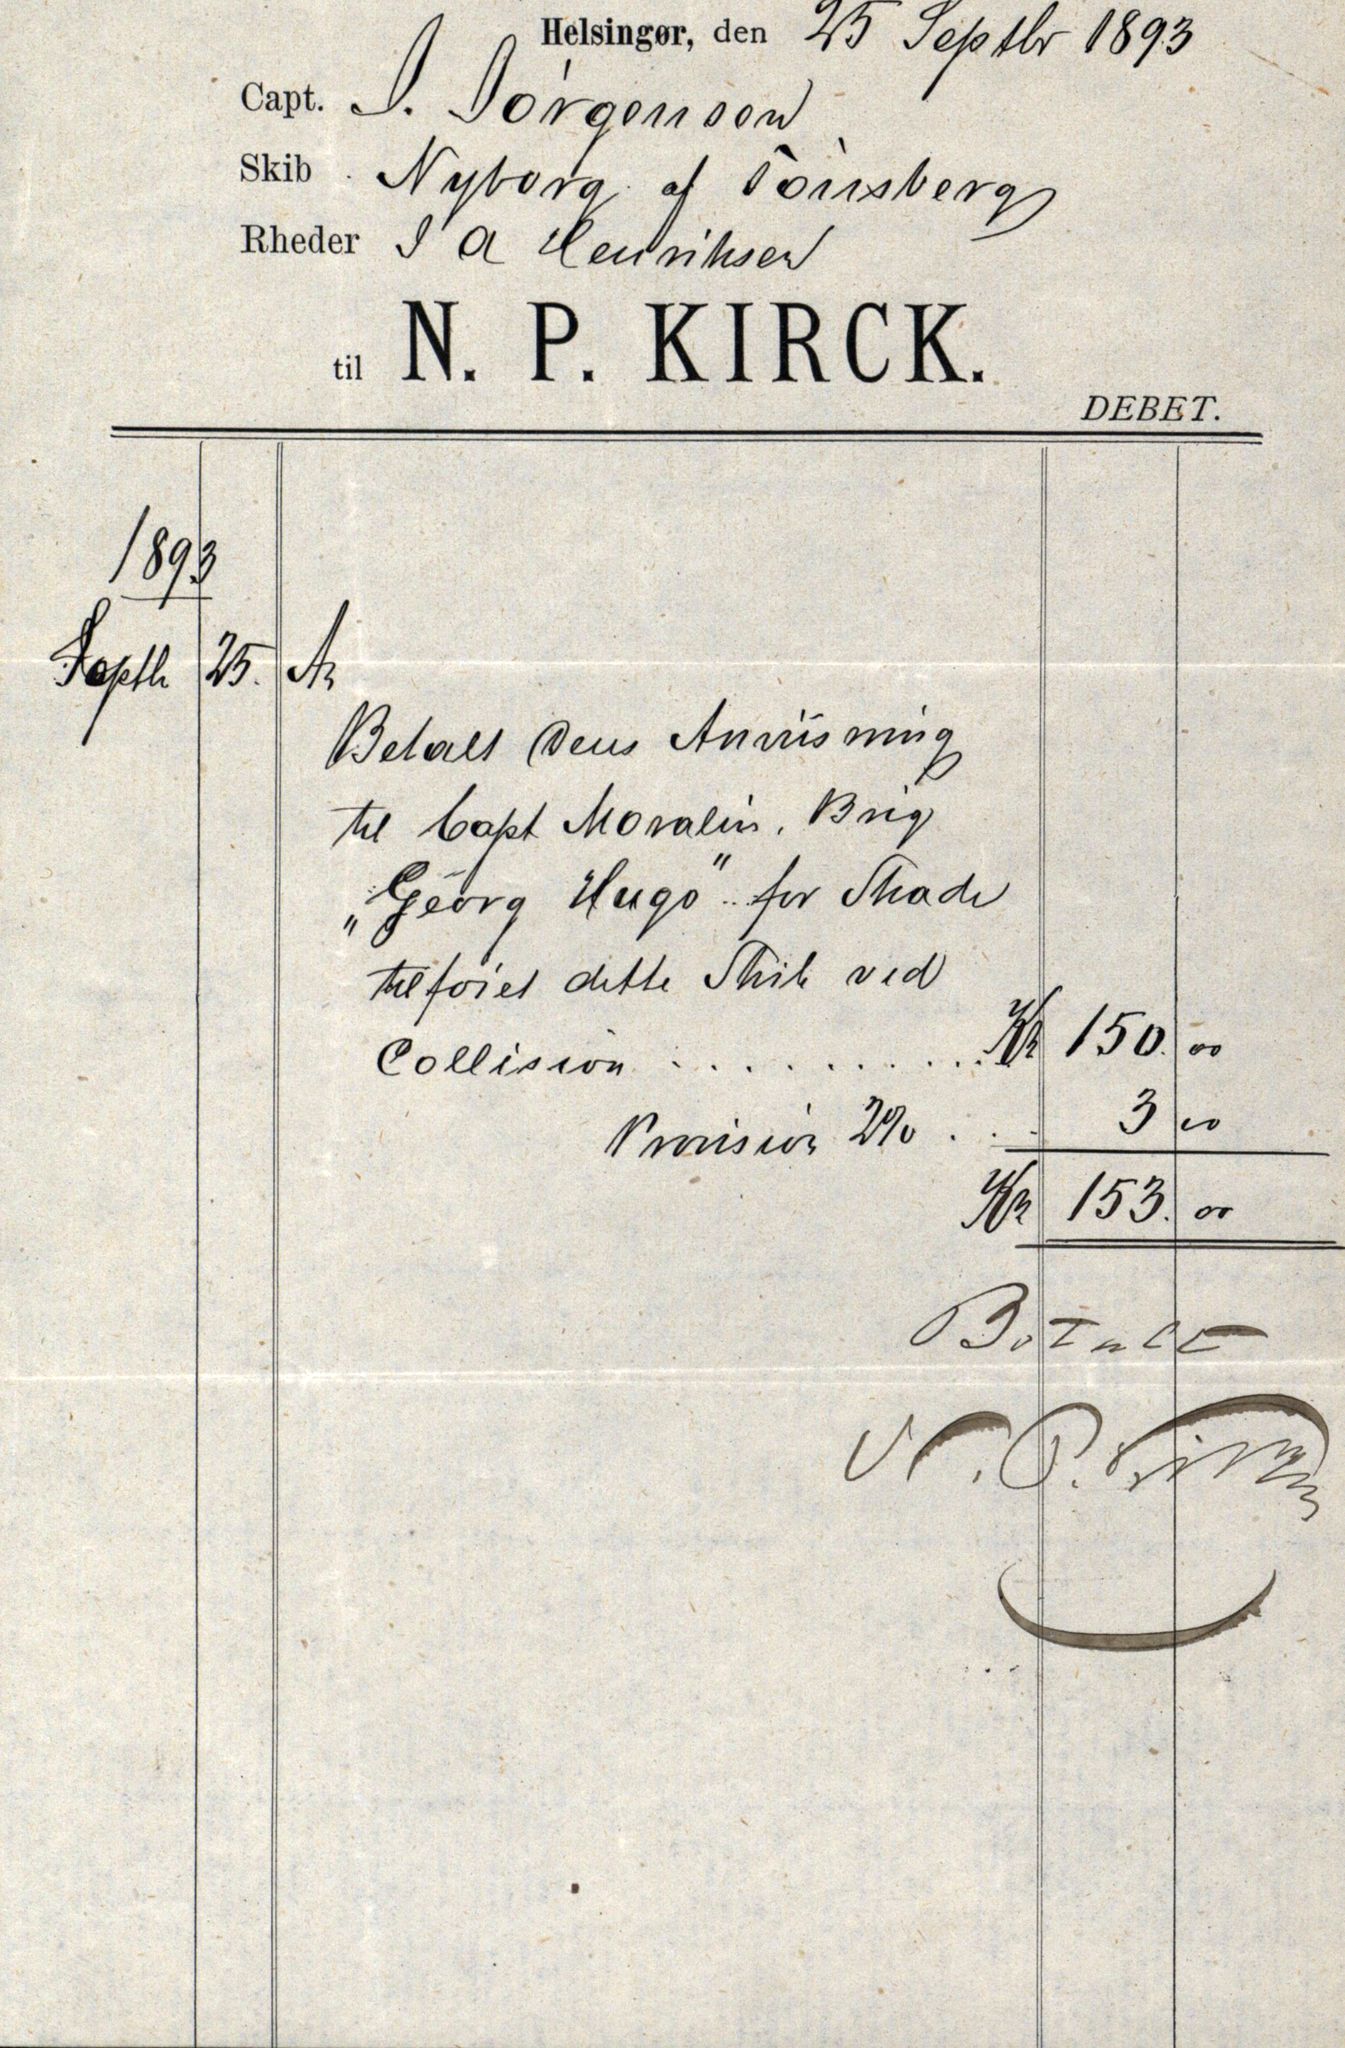 Helsingør, den 25 Septbr 1893
Capt. J. Jörgensen
Skib Nyborg af Tönsberg
Rheder J A Henriksen
til N. P. KIRCK.
DEBET.
1893
Septb 25. An
Betalt Deres Anviisning
til Capt Moralin. Brig
„Georg Hugo" for Skade
tilföiet dette Skib ved
Collision . . . . . . . . . . Kr 150. 00
Provision 2% . . . 3 00
Kr 153. 00
Betalt
N. P. Kirck